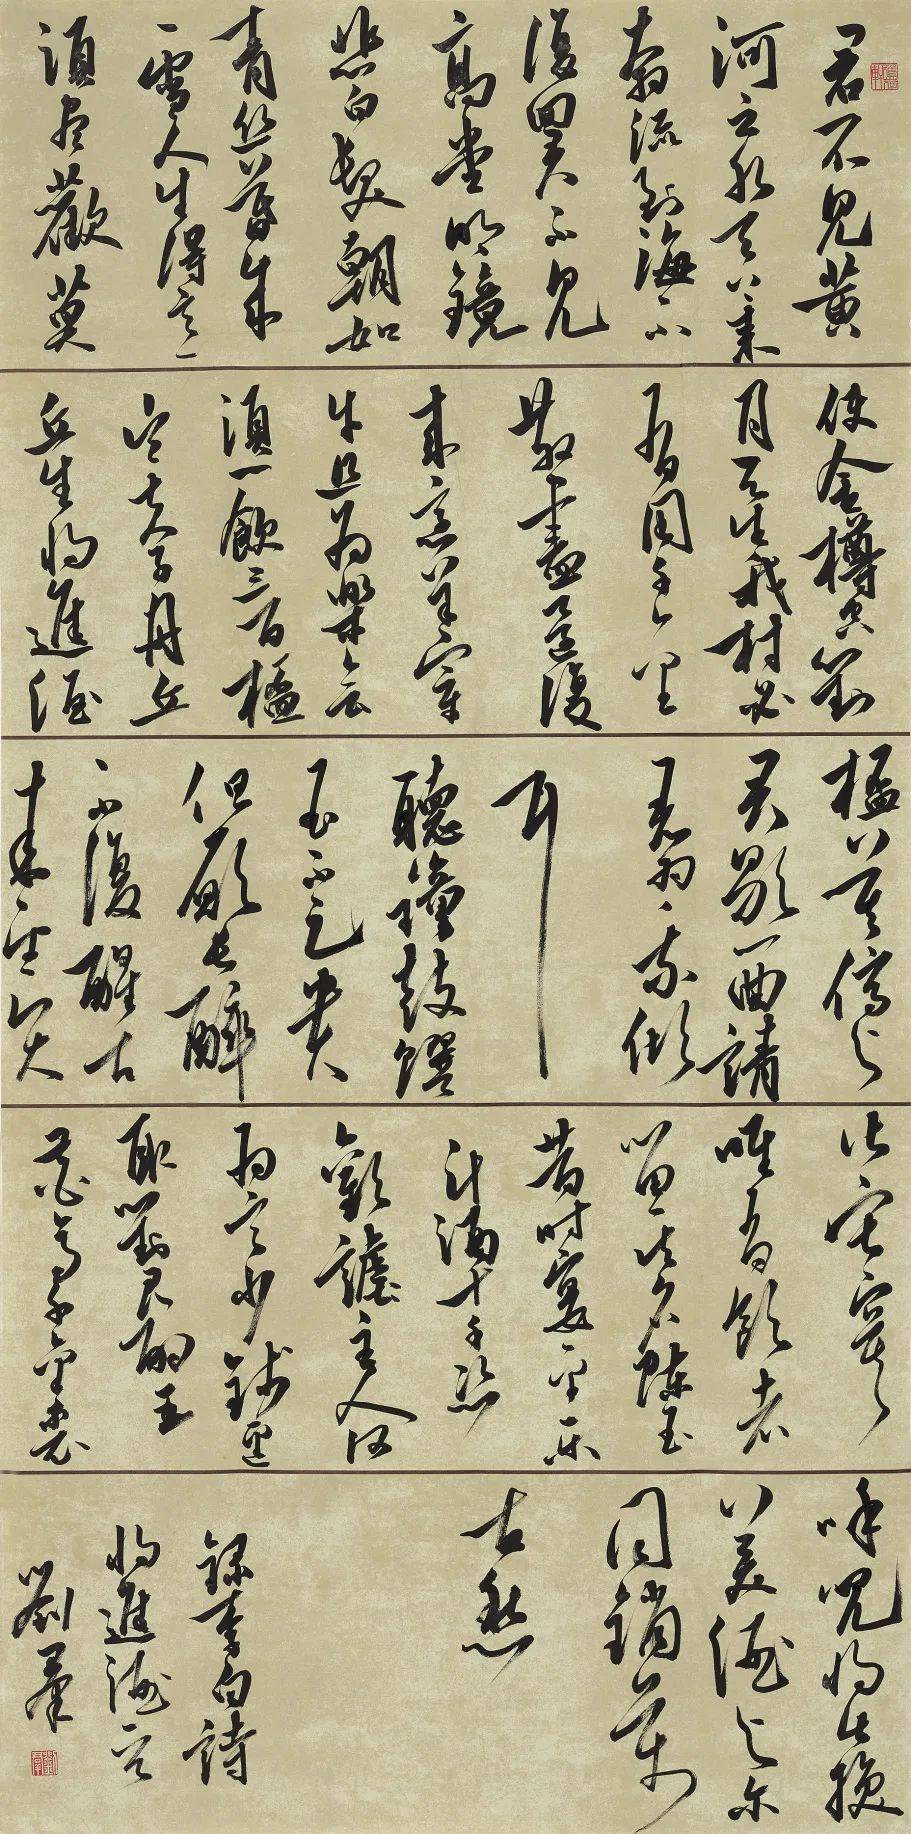 君不見黃
河之水天上来
奔流到海不
復回君不見
高堂明鏡
悲白髮朝如
青絲暮成
雪人生得意
須盡歡莫
使金樽空對
月天生我材必
有用千金
散盡還復
来烹羊宰
牛且為樂會
須一飲三百杯
岑夫子丹丘
丘生將進酒
杯莫停與
君歌一曲請
君為我傾
耳
聽鐘鼓饌
玉不足貴
但願長醉
不復醒古
来聖賢
皆寂寞
唯有飲者
留其名陳王
昔時宴平樂
斗酒十千恣
歡謔主人何
為言少錢逕
取對君酌五
花馬千金裘
呼兒將出換
美酒與爾
同銷萬
古愁
錄李白詩
將進酒
劉羣